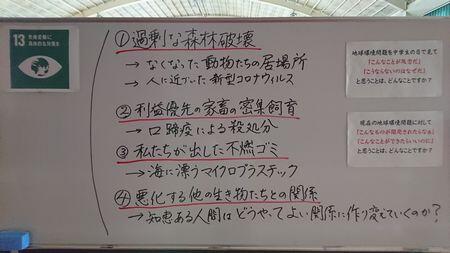 13 気候変動に
具体的な対策を
① 過剰な森林破壊
→ なくなった動物たちの居場所
→ 人に近づいた新型コロナウィルス
② 利益優先の家畜の密集飼育
→ 口蹄疫による殺処分
③ 私たちが出した不燃ゴミ
→ 海に漂うマイクロプラスチック
④ 悪化する他の生き物たちとの関係
→ 知恵ある人間はどうやってよい関係に作り変えていくのか?
地球環境問題を中学生の目で見て
「こんなことが残念だ」
「こうならないのはなぜだ」
と思うことは、どんなことですか?
現在の地球環境問題に対して
「こんなものが開発されたらなぁ」
「こんなことができたらいいのに」
と思うことは、どんなことですか?